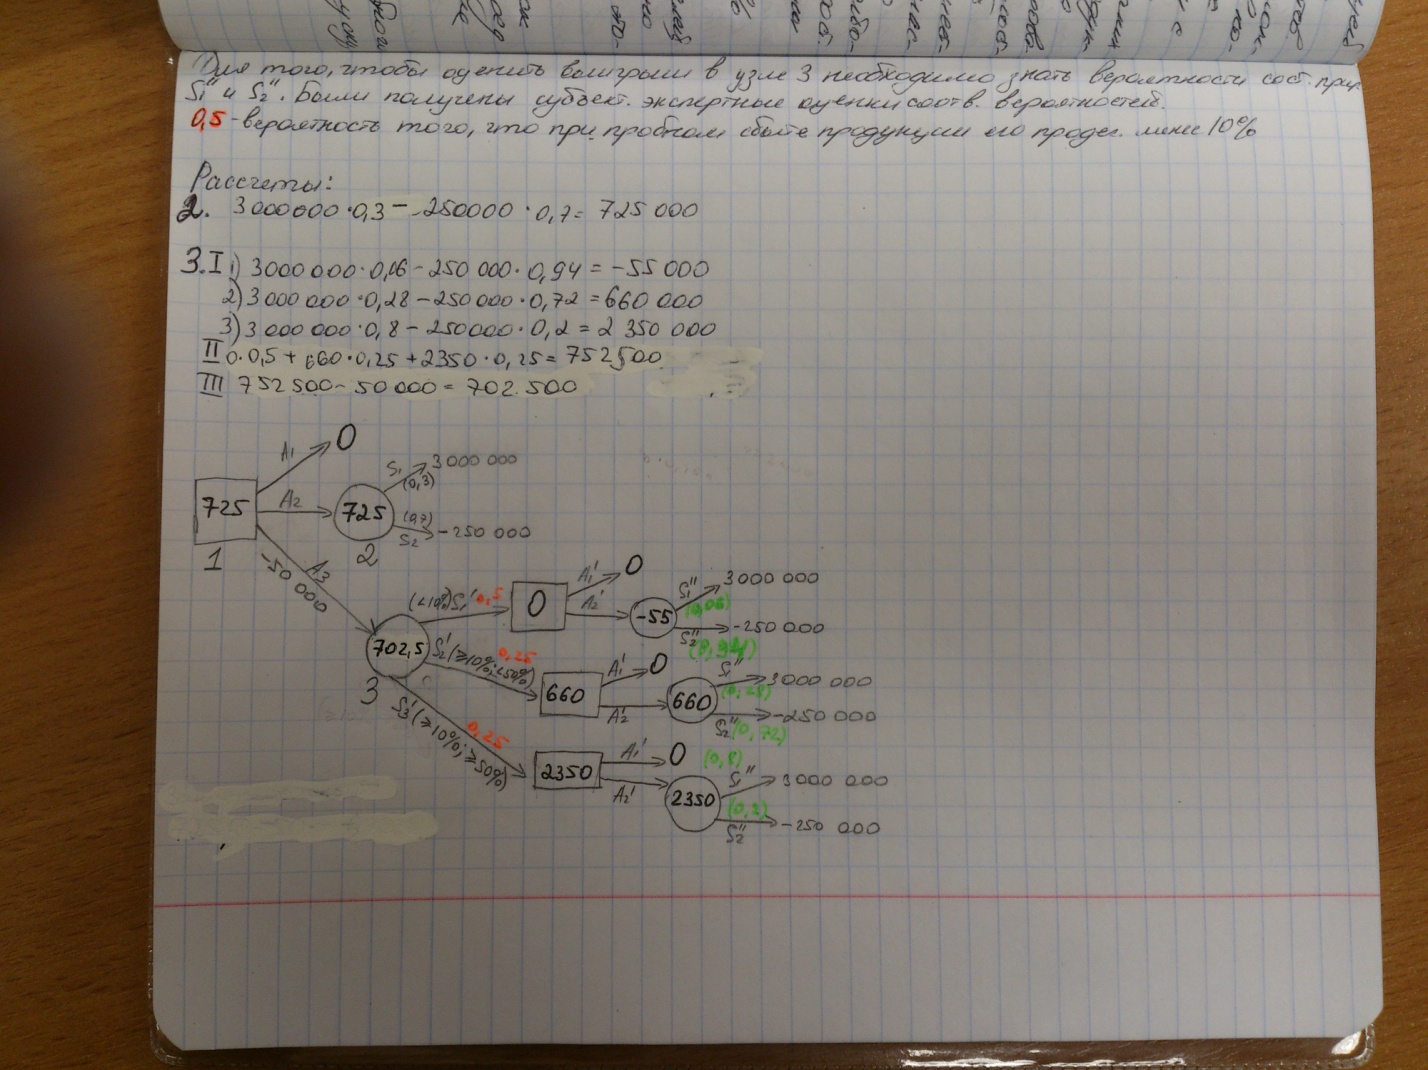 Для того, чтобы оценить выигрыш в узле 3 необходимо знать вероятности сост. прир.
S₁'' и S₂''. Были получены субъект. экспертные оценки соотв. вероятностей.
0,5 - вероятность того, что при пробном сбыте продукции его продаж. менее 10%
Рассчеты:
2. 3000000·0,3 - 250000·0,7= 725 000
3. I 1) 3000 000·0,06 - 250 000·0,94 = -55 000
2) 3 000 000·0,28 - 250 000·0,72 = 660 000
3) 3 000 000·0,8 - 250000·0,2 = 2 350 000
II 0·0,5 + 660·0,25 + 2350·0,25 = 752 500
III 752 500 - 50 000 = 702 500
A₁ 0
S₁ (0,3) 3 000 000
725 A₂ 725
(0,7) S₂ -250 000
1 2
A₃ -50 000
A₁' 0
S₁'' 3 000 000
(<10%) S₁' 0,5 0 A₂' -55 (0,06)
S₂'' -250 000
(0,94)
702,5 S₂' (≥10%; <50%) 0,25
3
A₁' 0
S₁'' 3 000 000
660 A₂' 660 (0,28)
S₂'' -250 000
(0,72)
S₃' (≥10%; ≥50%) 0,25
A₁' 0 (0,8)
S₁'' 3 000 000
2350 A₂' 2350 (0,2)
S₂'' -250 000